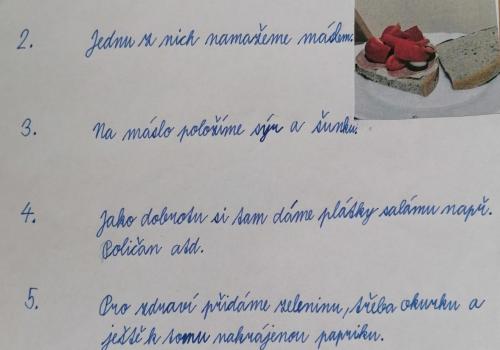 2. Jednu z nich namažeme máslem.
3. Na máslo položíme sýr a šunku.
4. Jako dobrotu si tam dáme plátky salámu např.
Poličan atd.
5. Pro zdraví přidáme zeleninu, třeba okurku a
ještě k tomu nakrájenou papriku.